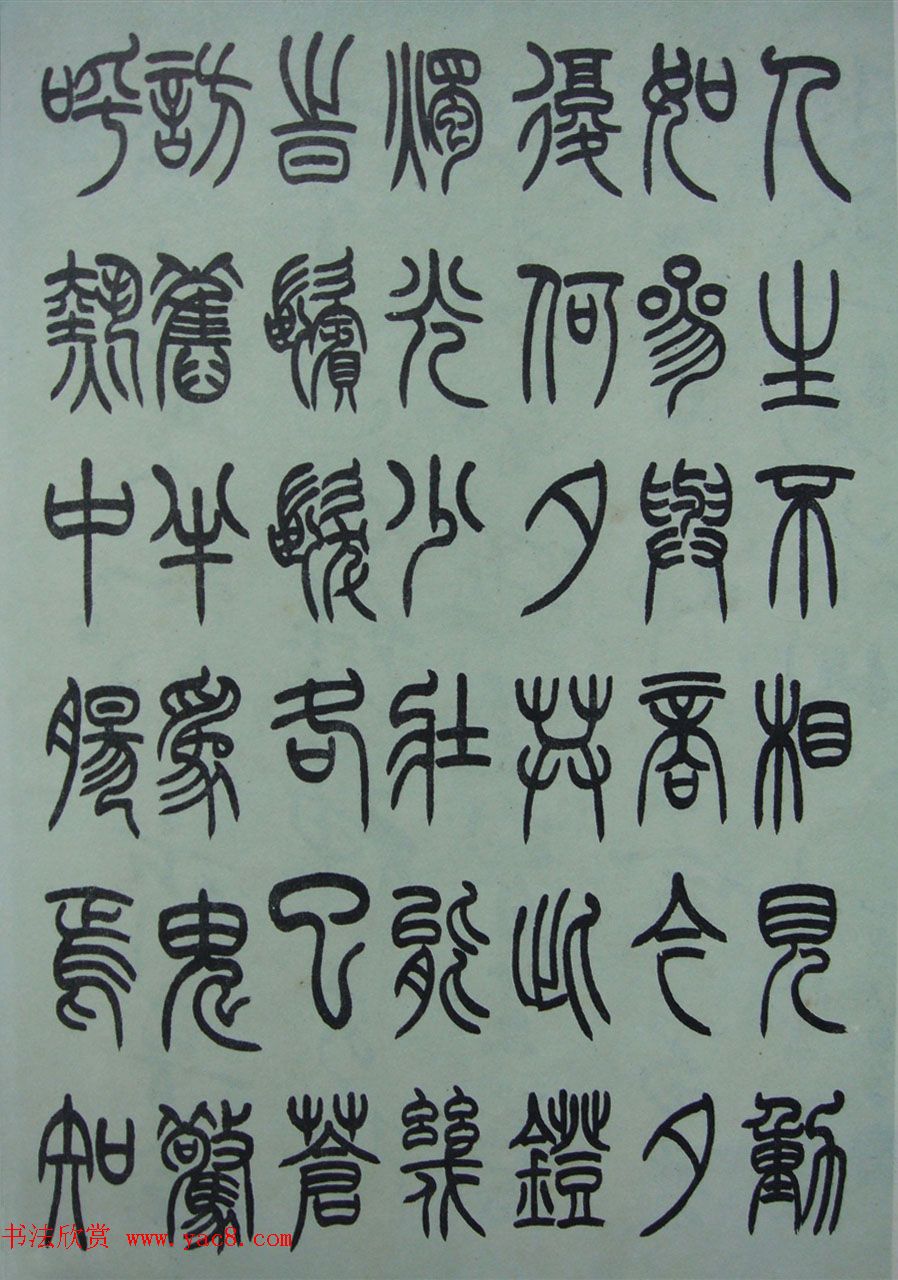 人生不相見動
如參與商今夕
復何夕共此鐙
燭光少壯能幾
旹鬢髮各已蒼
訪舊半爲鬼驚
呼熱中腸焉知
书法欣赏 www.yac8.com